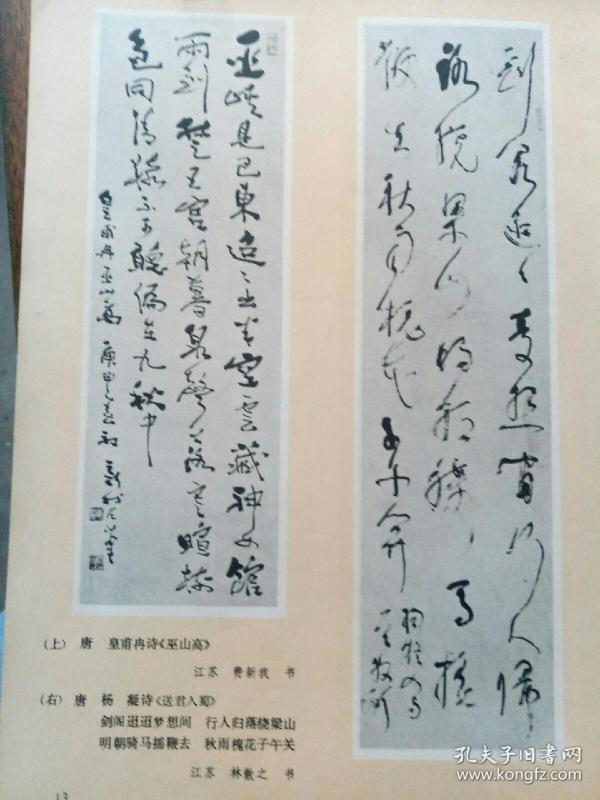 巫峽見巴東迢〻出半空雲藏神女館
雨到楚王宮朝暮泉聲落寒暄樹
色同清猿不可聽偏在九秋中
皇甫冉巫山高 庚申之春初
劍閣迢〻夢想間行人歸
路繞梁山明朝騎馬搖
鞭去秋雨槐花子午關
(上) 唐 皇甫冉诗《巫山高》
江苏 费新我 书
(右) 唐 杨 凝诗《送君入蜀》
剑阁迢迢梦想间 行人归落绕梁山
明朝骑马摇鞭去 秋雨槐花子午关
江苏 林散之 书
13
孔夫子旧书网
www.kongfz.com